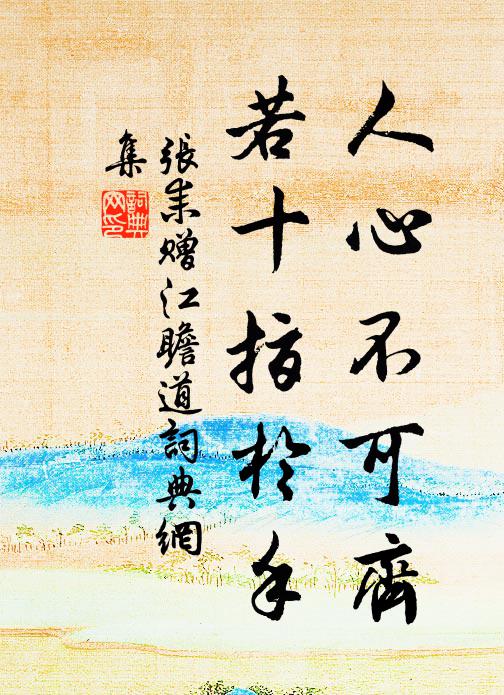 人心不可齊
若十指於手
張耒贈江瞻道詞典網
集
詞典
网印